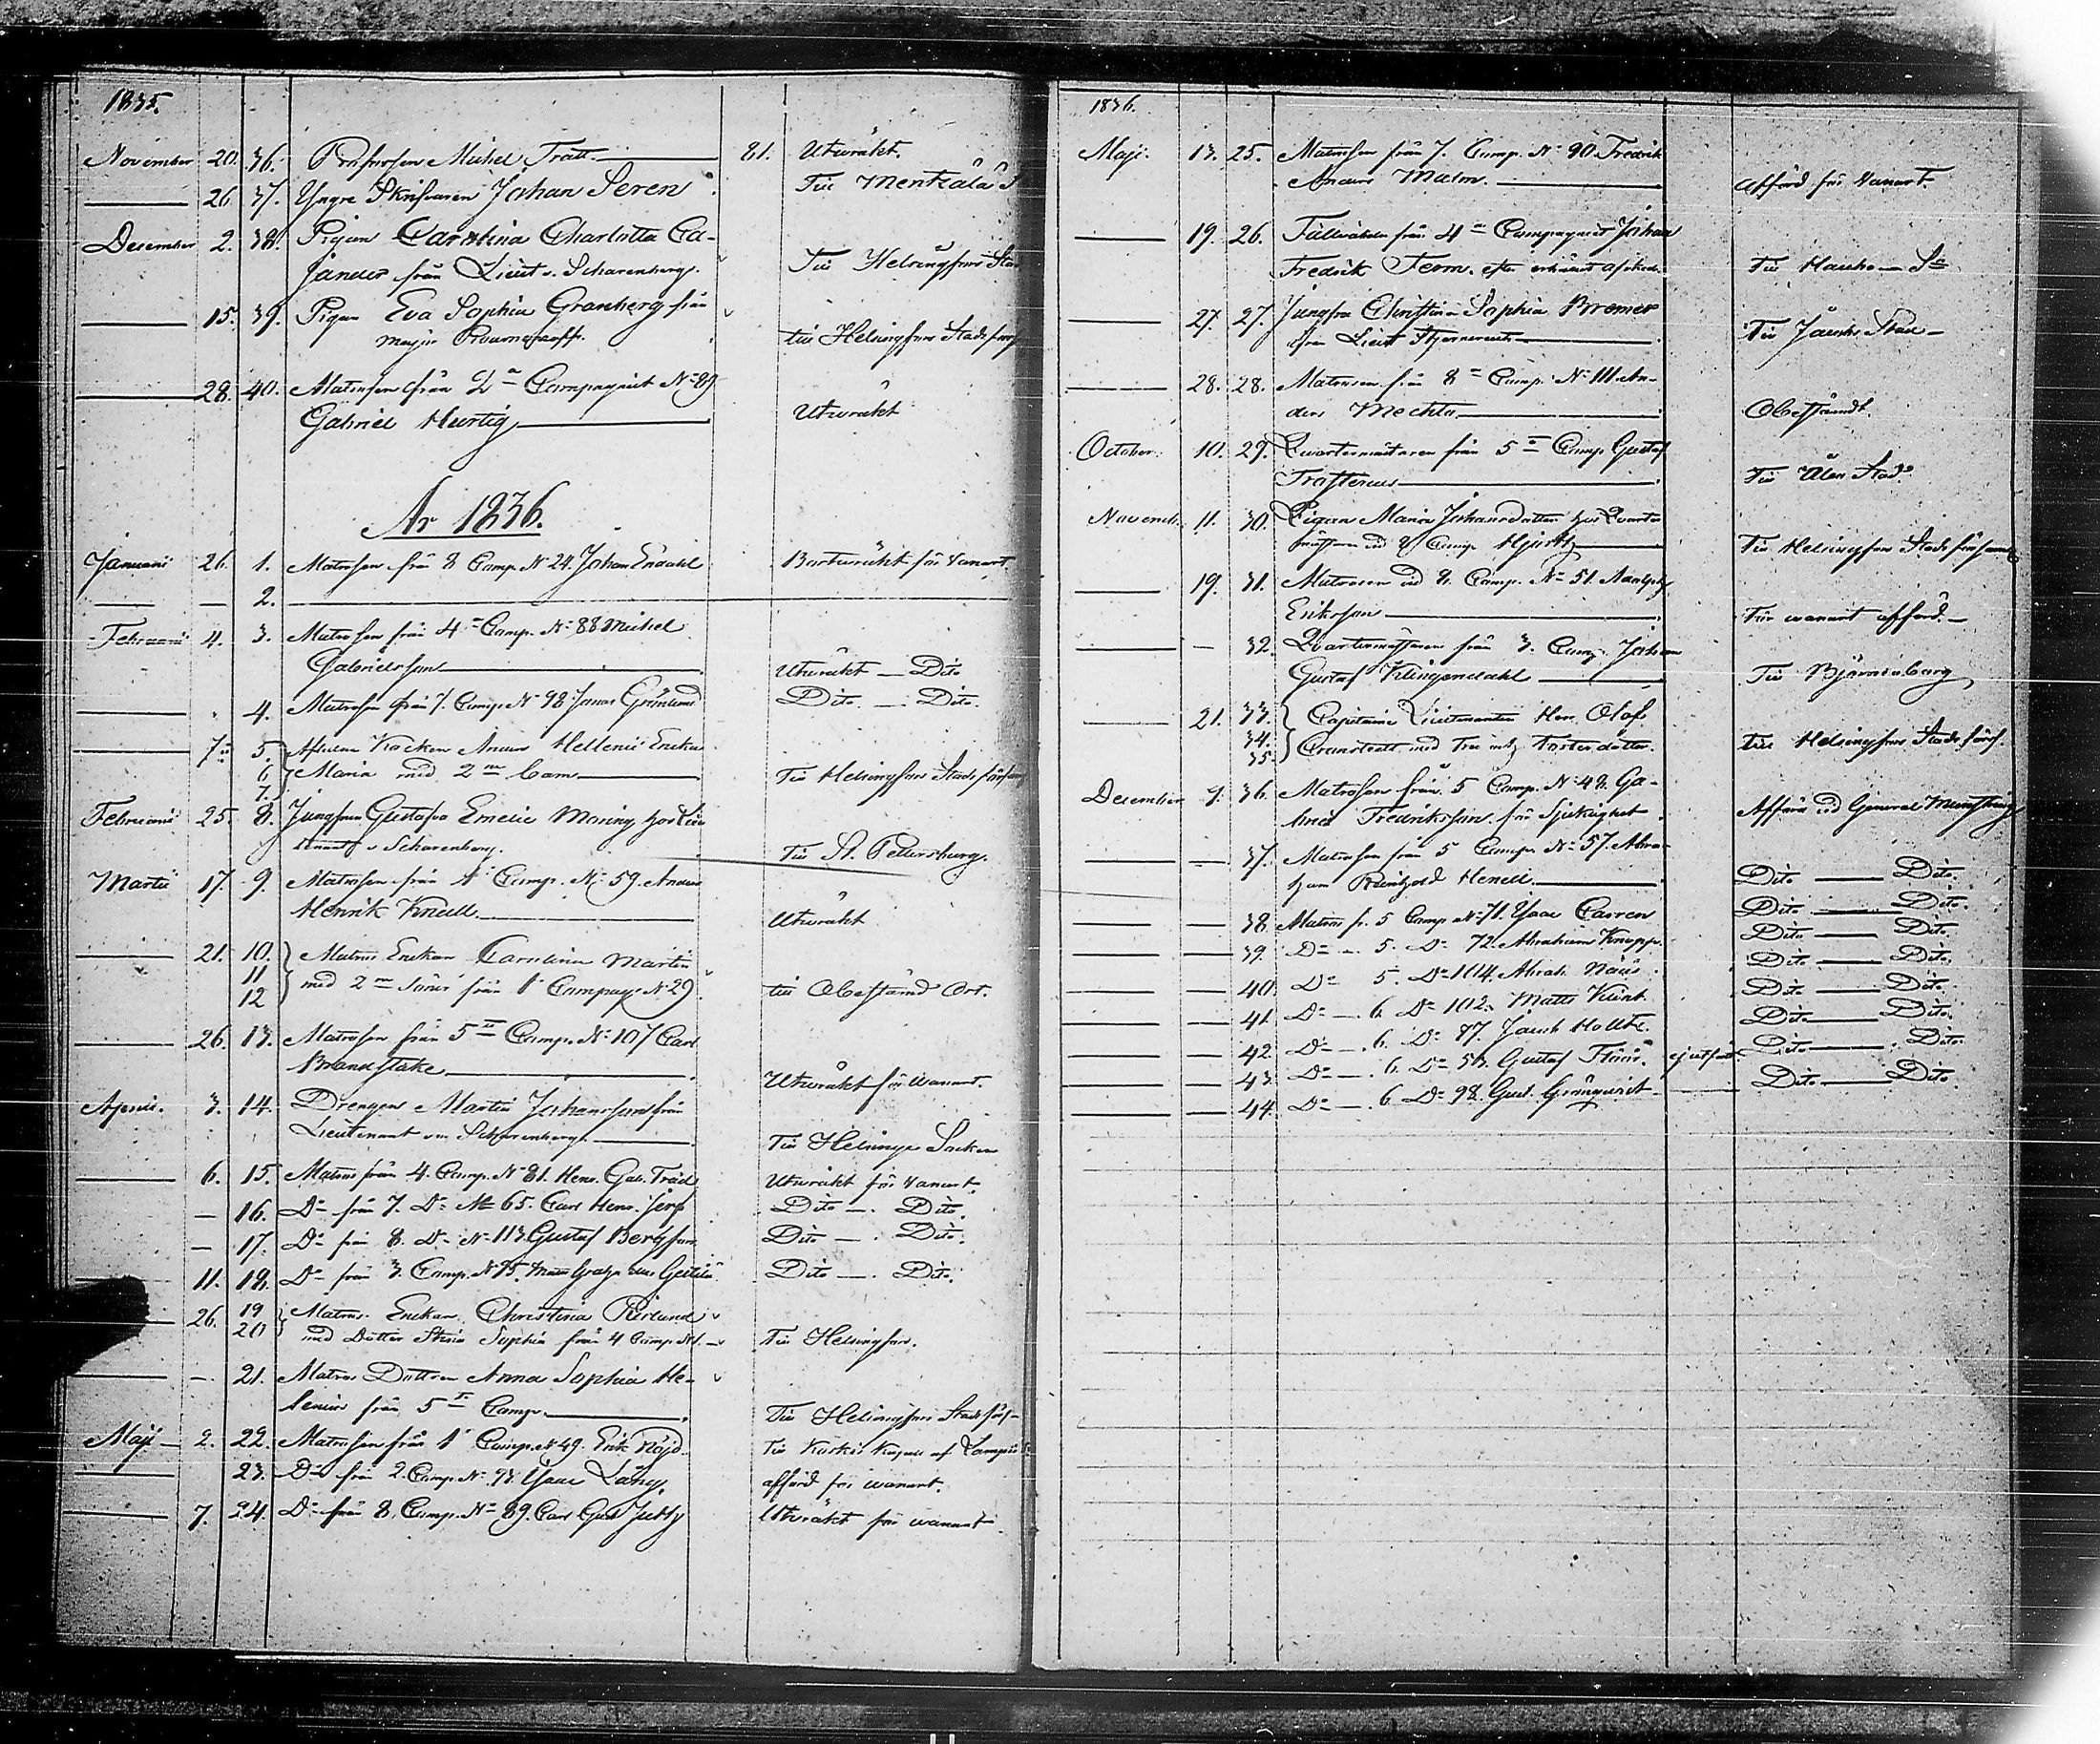 1835.
November 20. 36. Michel Trått. 81. Utwräkt.
26 37. Yngre Skrifvaren Johan Seren Till Mentsälä
December 2. 38. Pigan Carolina Charlotta Ca-
jander från Lieut. v. Scharenberg. Till Helsingfors Stad
15. 39. Pigan Eva Sophia Granberg från
major till Helsingfors Stads förs
28. 40. Matrosen från 2 Compagniet No 89
Gabriel Hurtig Utwräkt
År 1836.
Januarii 26. 1. Matrosen från 8 Comp. No 24. Johan Endahl Bortwräkt för vanart
2.
Februarii 4. 3. Matrosen från 4 Comp. No 88 Michel
Gabrielsson Utwräkt — Dito
4. Matrosen från 7. Comp. No 98 Jonas Grönlund Dito — Dito.
7. 5. Afledne Kocken Anders Hellenii Enka
6 Maria med 2 barn Till Helsingfors Stads församl
7.
Februarii 25. 8. Jungfrun Gustafva Emelie Maning hos Lieu
tenant v Scharenberg. Till St. Pettersburg.
Martii 17. 9. Matrosen från 1 Comp. No 59. Anders
Henrik Knall Utwräkt
21. 10. Matros Enkan Carolina Martin
11 med 2 Söner från 1 Compag. No 29 till Obestämd Ort.
12
26. 13. Matrosen från 5 Comp. No 107 Carl
Brandstake Utwräkt för wanart.
Aprill. 3. 14. Drengen Martin Johansson från
Lieutenant von Scharenberg. Till Helsinge Socken
6. 15. Matros från 4. Comp. No 81. Henr. Gab. Träd Utwräkt för vanart.
16. Do från 7. Do No 65. Carl Henr. Jerf Dito — Dito.
17. Do från 8. Do No 113. Gustaf Bergfors Dito — Dito.
11. 18. Do från 3. Comp. No 95. Dito — Dito.
26. 19 Matros Enkan Christina Risland
20 med Dotter Stina Sophia från 4 Comp. No 1. Till Helsingfors.
21. Matros Dottren Anna Sophia He-
lenius från 5 Comp. Till Helsingfors Stads förs
Maji 2. 22. Matrosen från 1 Comp. No 49. Erik Nöjd. Till Kurkis af
23. Do från 2. Comp. No 93. Isaac Lång. afförd för wanart.
7. 24. Do från 8. Comp. No 89. Carl Gust Utwräkt för wanart.
1836.
Maji. 13. 25. Matrosen från 7. Comp. No 90 Fredrik
Anders Malm. Afförd för Vanart.
19. 26. från 4 Compagniet Johan
Fredrik Ferm. efter erhållit afsked. Till Hauho Sn
27. 27. Jungfru Christina Sophia Bremer
från Lieut Stjerncreutz Till
28. 28. Matrosen från 8 Comp. No 111. An-
ders Mechta Obestämdt.
October. 10. 29. Qvartermästaren från 5 Comp. Gustaf
Trasterus Till Stad.
Novemb. 11. 30. Pigan Maria Johansdotter hos Quarter
mästaren vid 8 Comp. Hjort Till Helsingfors Stads församl
19. 31. Matrosen vid 8. Comp. No 51. Adolph
Eriksson För wanart afförd.
32. Qvartermästaren från 3. Comp. Johan
Gustaf Klingendahl Till Björneborg
21. 33. Capitaine Lieutenanten Herr Olof
34. Cronstedt med Fru och Fosterdotter. Till Helsingfors Stads förs.
35.
December 9. 36. Matrosen från 5 Comp. No 48. Ga-
briel Fredriksson för Sjuklighet Afförd vid General Mönstring
37. Matrosen från 5 Comp. No 57. Abra-
ham Reinhold Henell. Dito — Dito.
38. Matros fr. 5 Comp No 71. Isaac Carren Dito — Dito.
39. Do — 5. Do 72. Abraham Knopp. Dito — Dito.
40. Do 5. Do 104. Abrah. Dito — Dito.
41. Do — 6. Do 102. Matts Dito — Dito.
42. Do — 6. Do 87. Jacob Dito — Dito.
43. Do — 6. Do 53. Gustaf Dito — Dito.
44. Do — 6. Do 98. Gust. Grönqwist Dito — Dito.